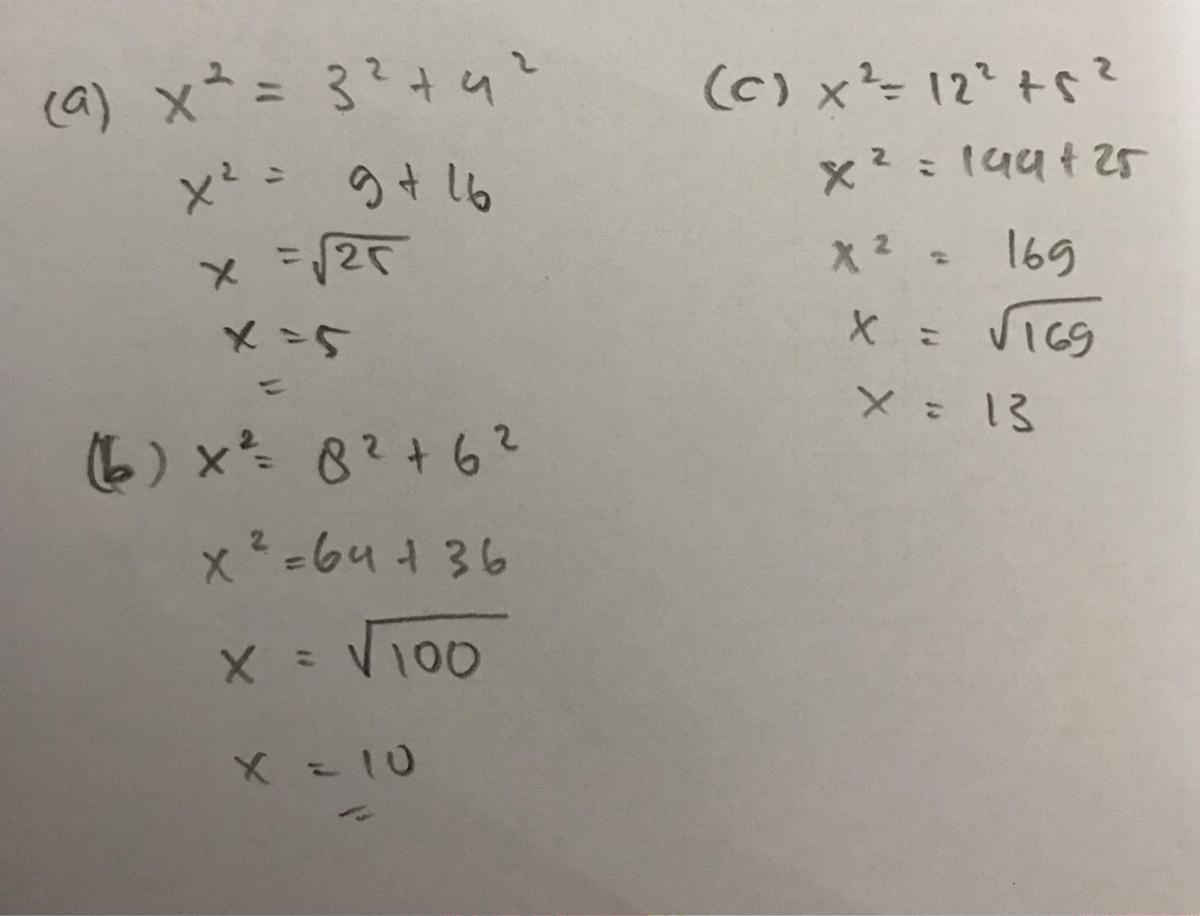 (a) x² = 3² + 4²
x² = 9 + 16
x = √25
x = 5
=
(b) x² = 8² + 6²
x² = 64 + 36
x = √100
x = 10
=
(c) x² = 12² + 5²
x² = 144 + 25
x² = 169
x = √169
x = 13